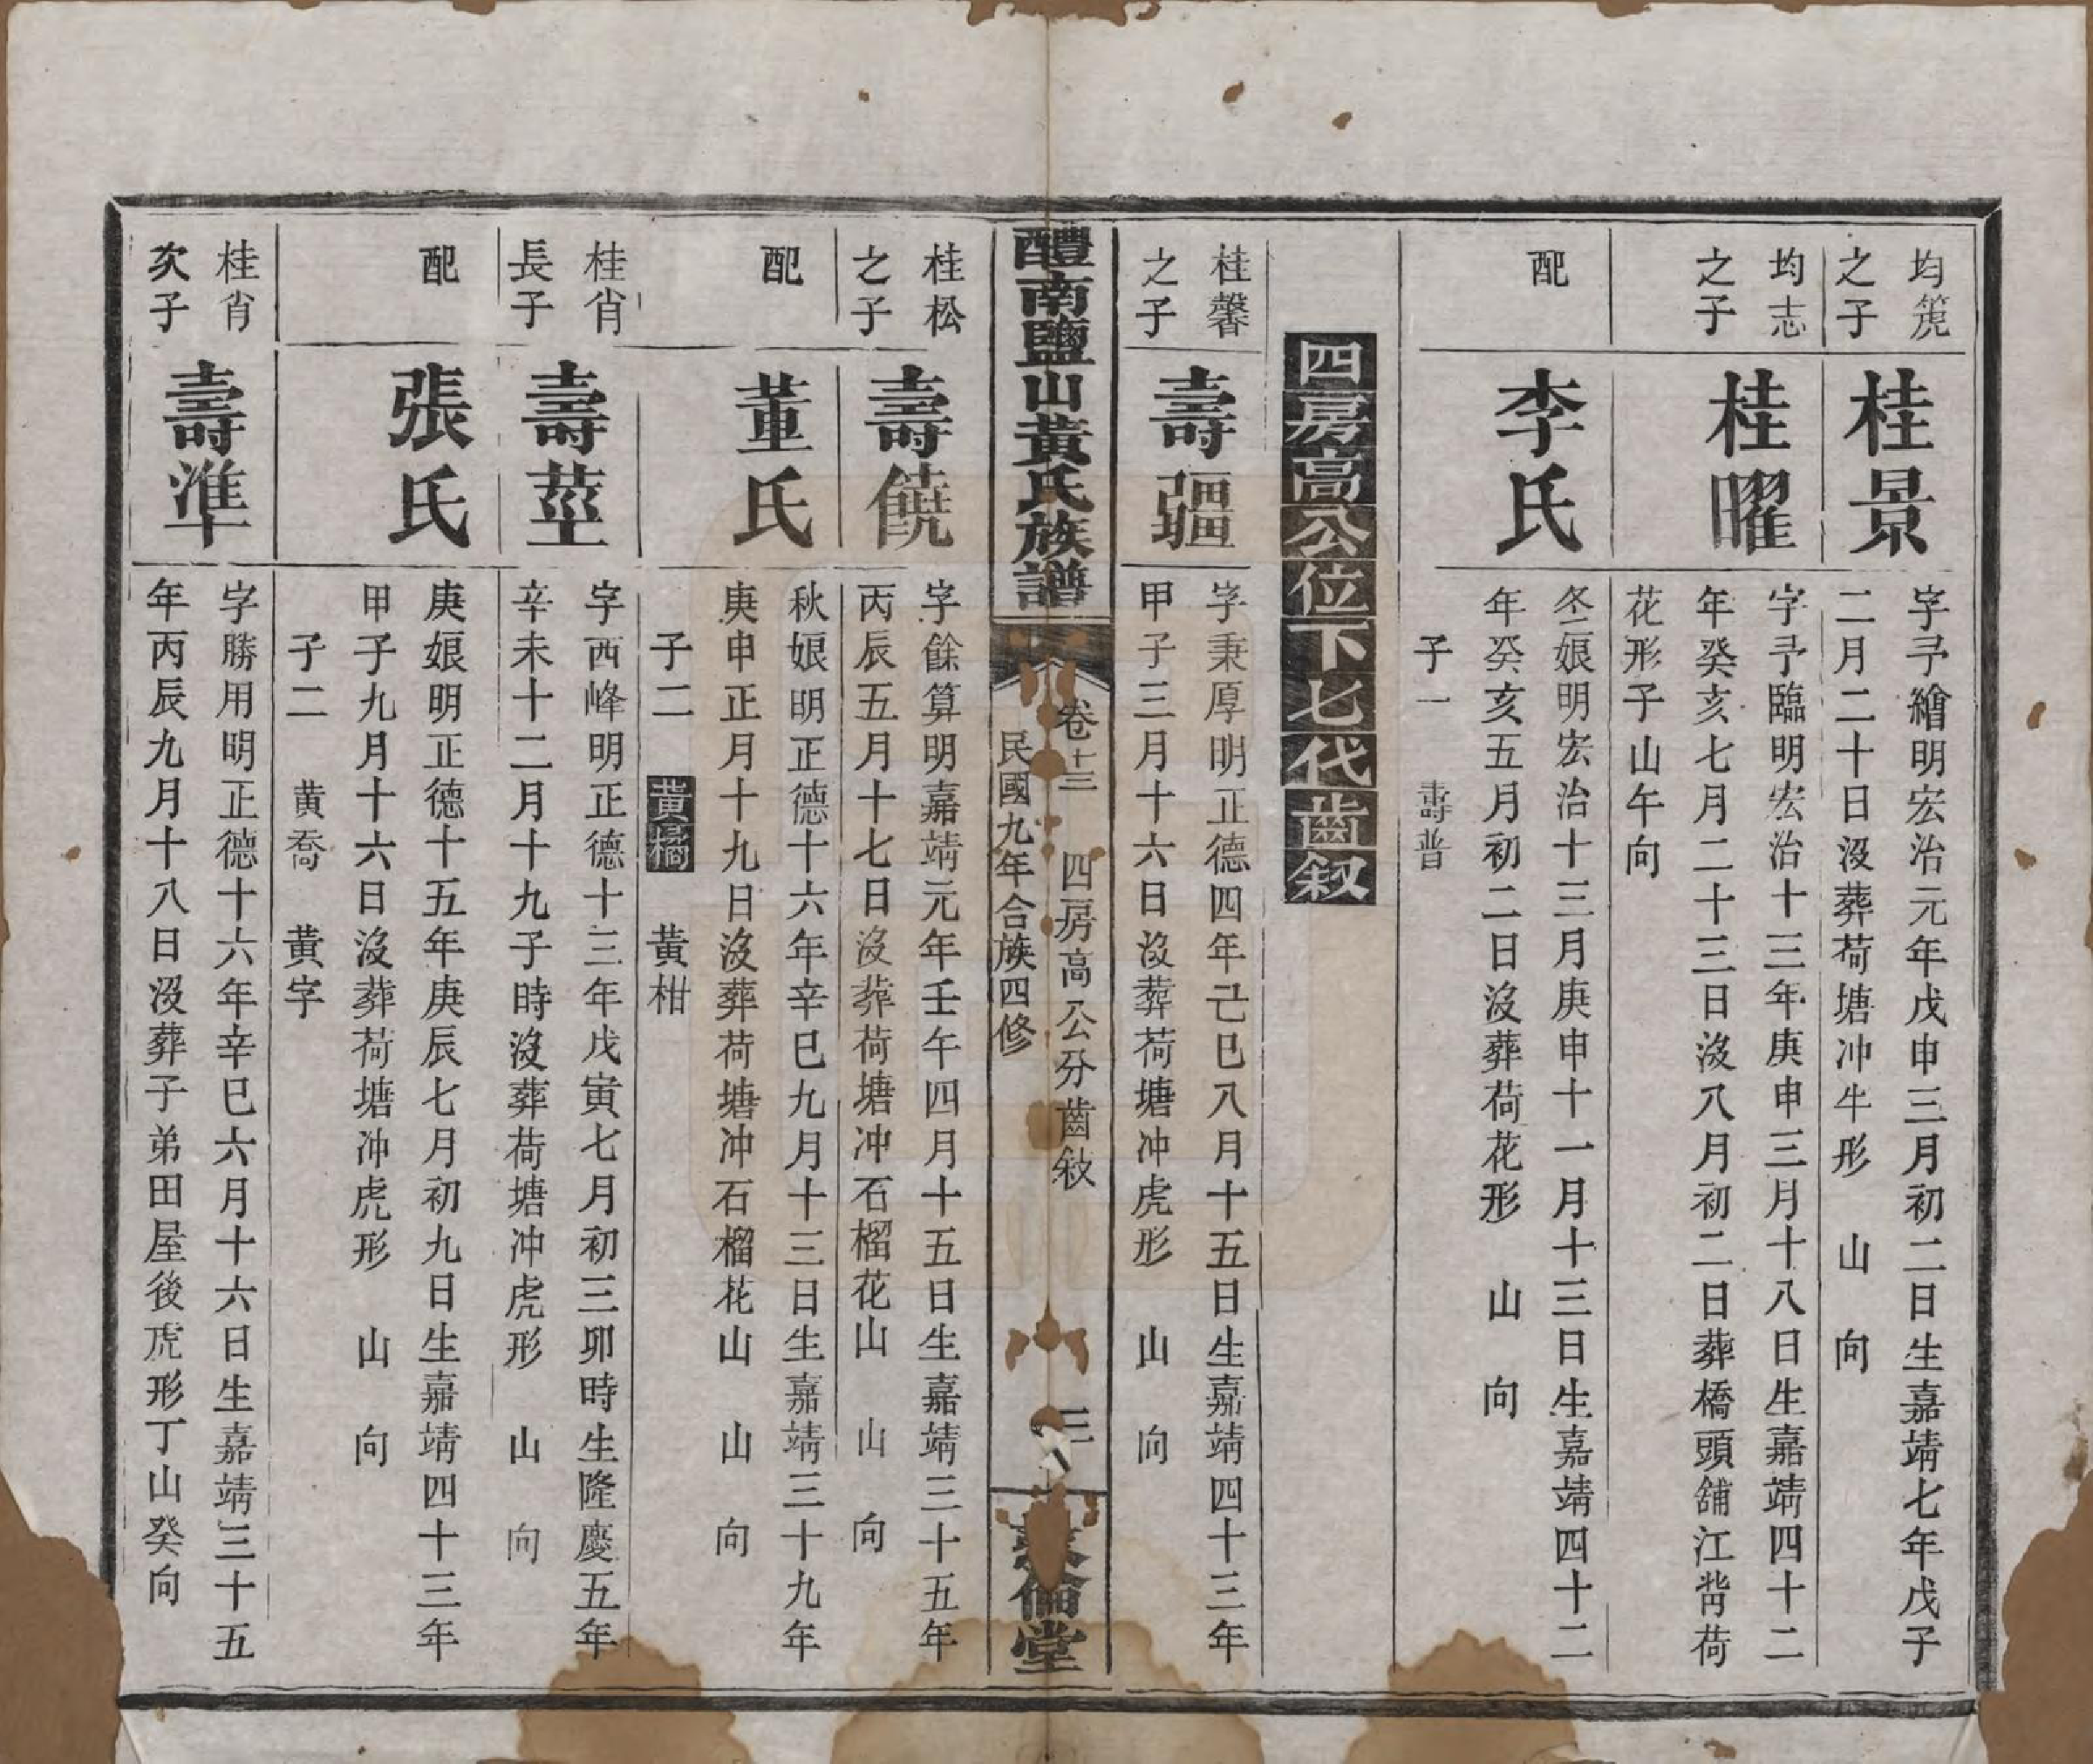 均箎
之子
桂景
字予繪明宏治元年戊申三月初二日生嘉靖七年戊子
二月二十日沒葬荷塘冲牛形　山　向
均志
之子
桂曜
字予臨明宏治十三年庚申三月十八日生嘉靖四十二
年癸亥七月二十三日沒八月初二日葬橋頭舖江背荷
花形子山午向
配
李氏
冬娘明宏治十三月庚申十一月十三日生嘉靖四十二
年癸亥五月初二日沒葬荷花形　山　向
子一　壽普
四房高公位下七代齒叙
桂馨
之子
壽疆
字秉厚明正德四年己巳八月十五日生嘉靖四十三年
甲子三月十六日沒葬荷塘冲虎形　山　向
醴南鹽山黃氏族譜
卷十三　四房高公分齒敘
民國九年合族四修
三
倫堂
桂松
之子
壽饒
字餘算明嘉靖元年壬午四月十五日生嘉靖三十五年
丙辰五月十七日沒葬荷塘冲石榴花山　山　向
配
董氏
秋娘明正德十六年辛巳九月十三日生嘉靖三十九年
庚申正月十九日沒葬荷塘冲石榴花山　山　向
子二　黃橘　黃柑
桂肖
長子
壽莖
字西峰明正德十三年戊寅七月初三卯時生隆慶五年
辛未十二月十九子時沒葬荷塘冲虎形　山　向
配
張氏
庚娘明正德十五年庚辰七月初九日生嘉靖四十三年
甲子九月十六日沒葬荷塘冲虎形　山　向
子二　黃喬　黃字
桂肖
次子
壽準
字勝用明正德十六年辛巳六月十六日生嘉靖三十五
年丙辰九月十八日沒葬子弟田屋後虎形丁山癸向